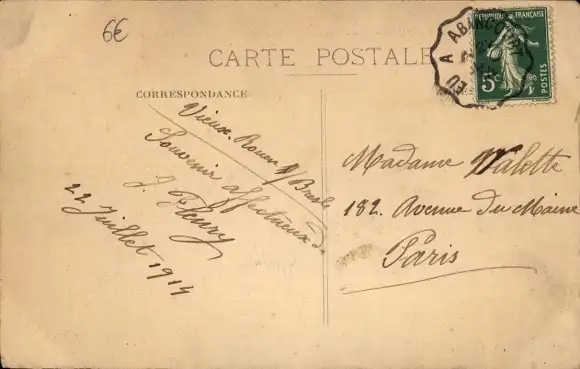 6€
CARTE POSTALE
RÉPUBLIQUE FRANÇAISE
5c
POSTES
EU A ABANCOURT
CORRESPONDANCE
Vieux-Rouen s/ Bresle
Souvenir affectueux de
J. Fleury
22 Juillet 1914
Madame Valette
182. Avenue du Maine
Paris